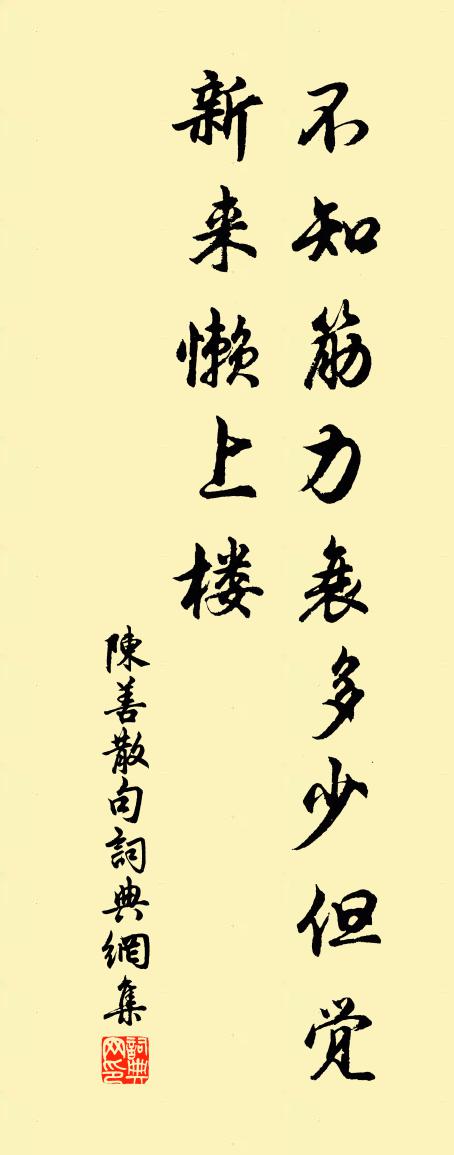 不知筋力衰多少但觉
新来懒上楼
陳善散句詞典網集
詞典网印